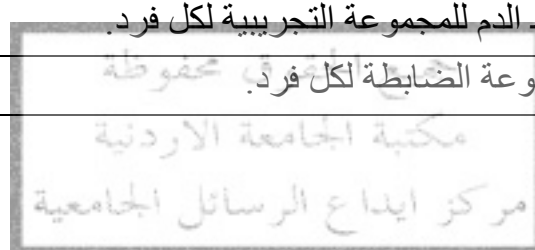 ـ الدم للمجموعة التجريبية لكل فرد.
وعة الضابطة لكل فرد.
جميع الحقوق محفوظة
مكتبة الجامعة الاردنية
مركز ايداع الرسائل الجامعية